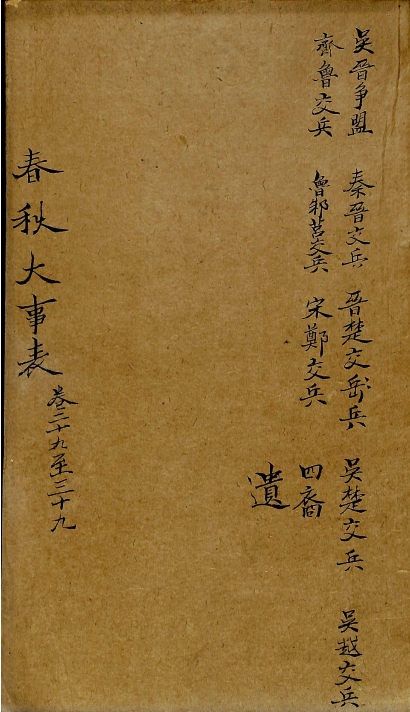 吳晉争盟 秦晉交兵 晉楚交兵 吳楚交兵 吳越交兵
齊魯交兵 魯邾莒交兵 宋鄭交兵 四裔
遺
春秋大事表 卷二十九至三十九